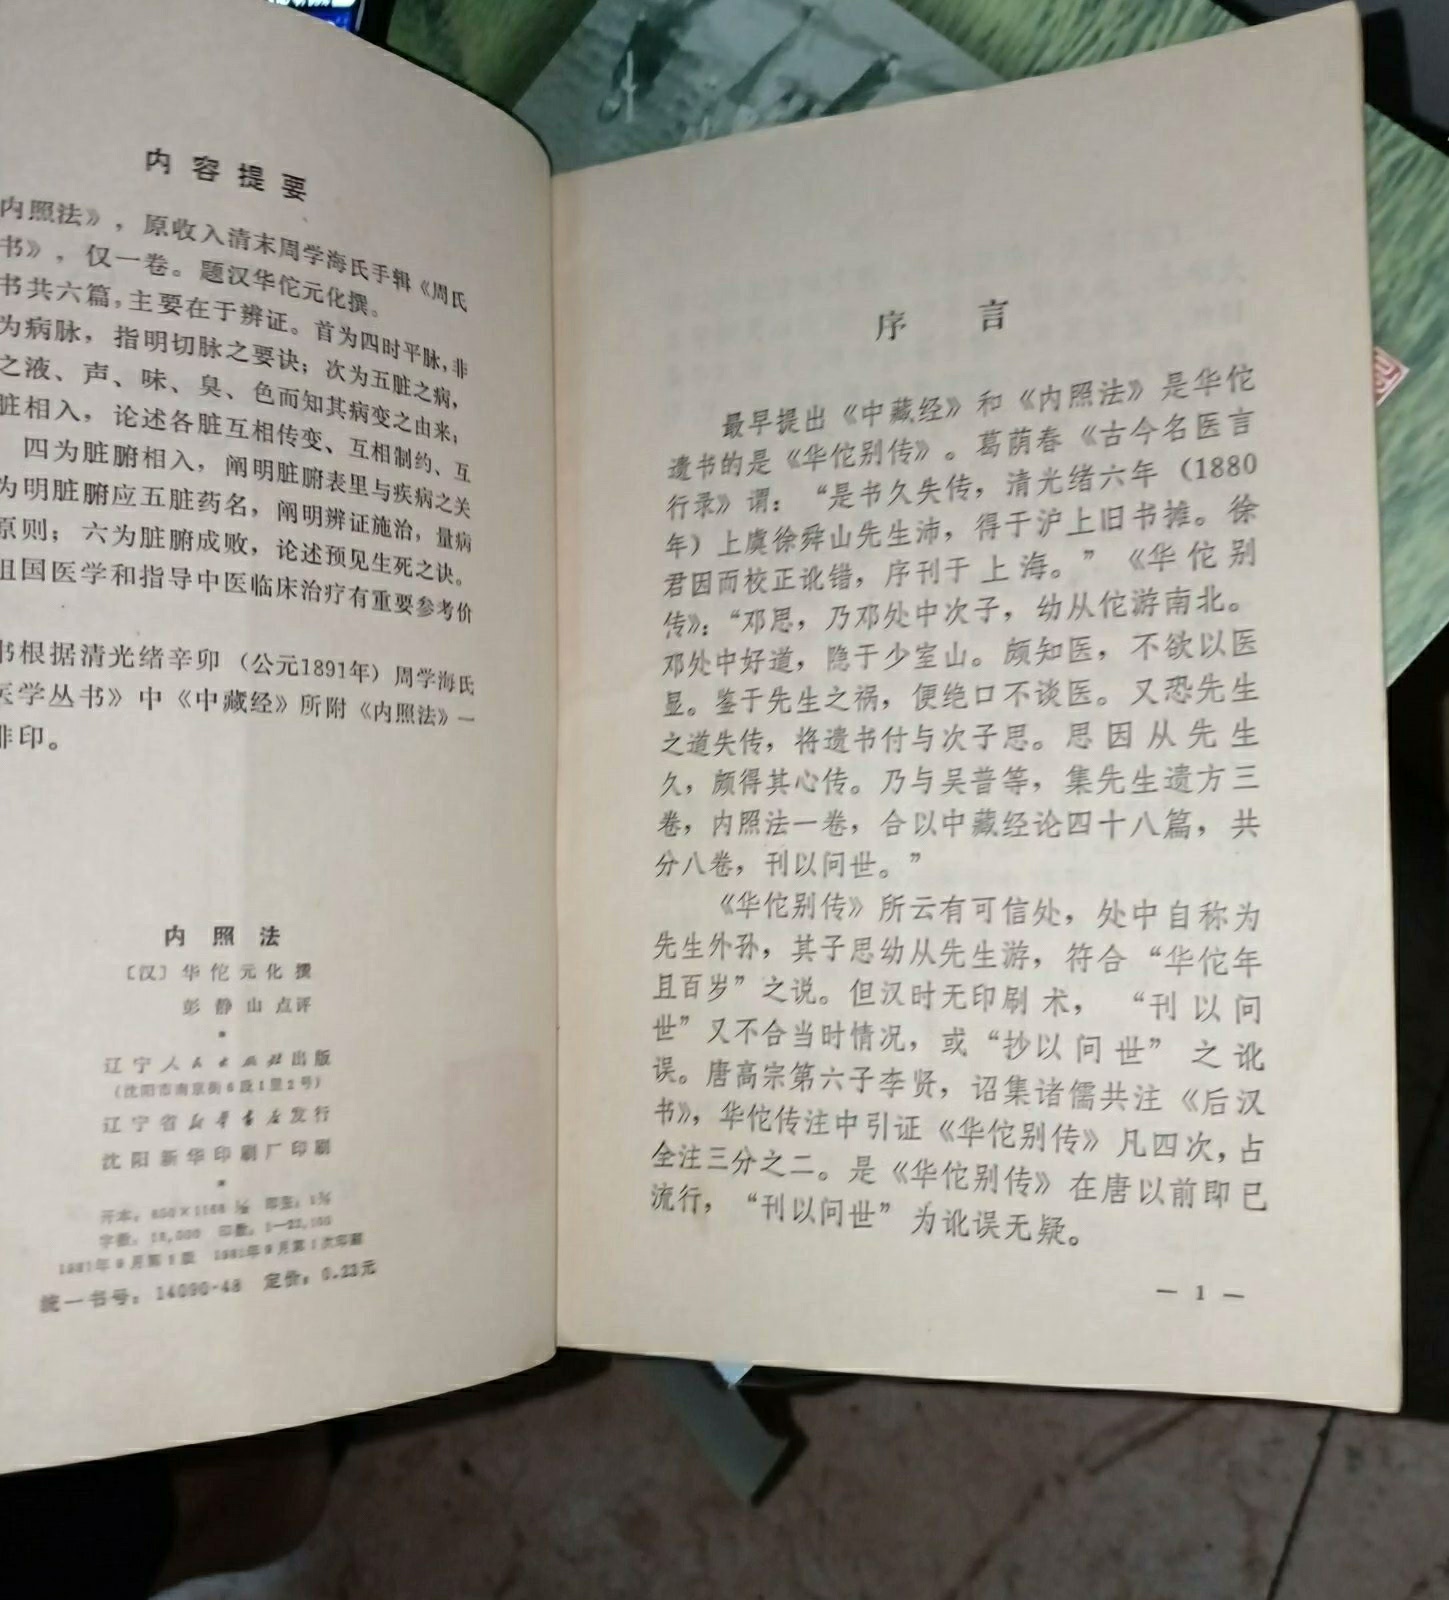 内容提要
内照法》，原收入清末周学海氏手辑《周氏
书》，仅一卷。题汉华佗元化撰。
书共六篇，主要在于辨证。首为四时平脉，非
为病脉，指明切脉之要诀；次为五脏之病，
之液、声、味、臭、色而知其病变之由来；
脏相入，论述各脏互相传变、互相制约、互
四为脏腑相入，阐明脏腑表里与疾病之关
为明脏腑应五脏药名，阐明辨证施治，量病
原则；六为脏腑成败，论述预见生死之诀。
祖国医学和指导中医临床治疗有重要参考价
书根据清光绪辛卯（公元1891年）周学海氏
医学丛书》中《中藏经》所附《内照法》一
排印。
内照法
〔汉〕华佗元化撰
彭静山点评
辽宁人民出版社出版
（沈阳市南京街6段1里2号）
辽宁省新华书店发行
沈阳新华印刷厂印刷
开本：850×1168 1/32 印张：
字数：18,000 印数：1—22,100
1981年9月第1版 1981年9月第1次印刷
统一书号：14090·48 定价：0.22元
序言
最早提出《中藏经》和《内照法》是华佗
遗书的是《华佗别传》。葛荫春《古今名医言
行录》谓：“是书久失传，清光绪六年（1880
年）上虞徐舜山先生沛，得于沪上旧书摊。徐
君因而校正讹错，序刊于上海。”《华佗别
传》：“邓思，乃邓处中次子，幼从佗游南北。
邓处中好道，隐于少室山。颇知医，不欲以医
显。鉴于先生之祸，便绝口不谈医。又恐先生
之道失传，将遗书付与次子思。思因从先生
久，颇得其心传。乃与吴普等，集先生遗方三
卷，内照法一卷，合以中藏经论四十八篇，共
分八卷，刊以问世。”
《华佗别传》所云有可信处，处中自称为
先生外孙，其子思幼从先生游，符合“华佗年
且百岁”之说。但汉时无印刷术，“刊以问
世”又不合当时情况，或“抄以问世”之讹
误。唐高宗第六子李贤，诏集诸儒共注《后汉
书》，华佗传注中引证《华佗别传》凡四次，占
全注三分之二。是《华佗别传》在唐以前即已
流行，“刊以问世”为讹误无疑。
— 1 —